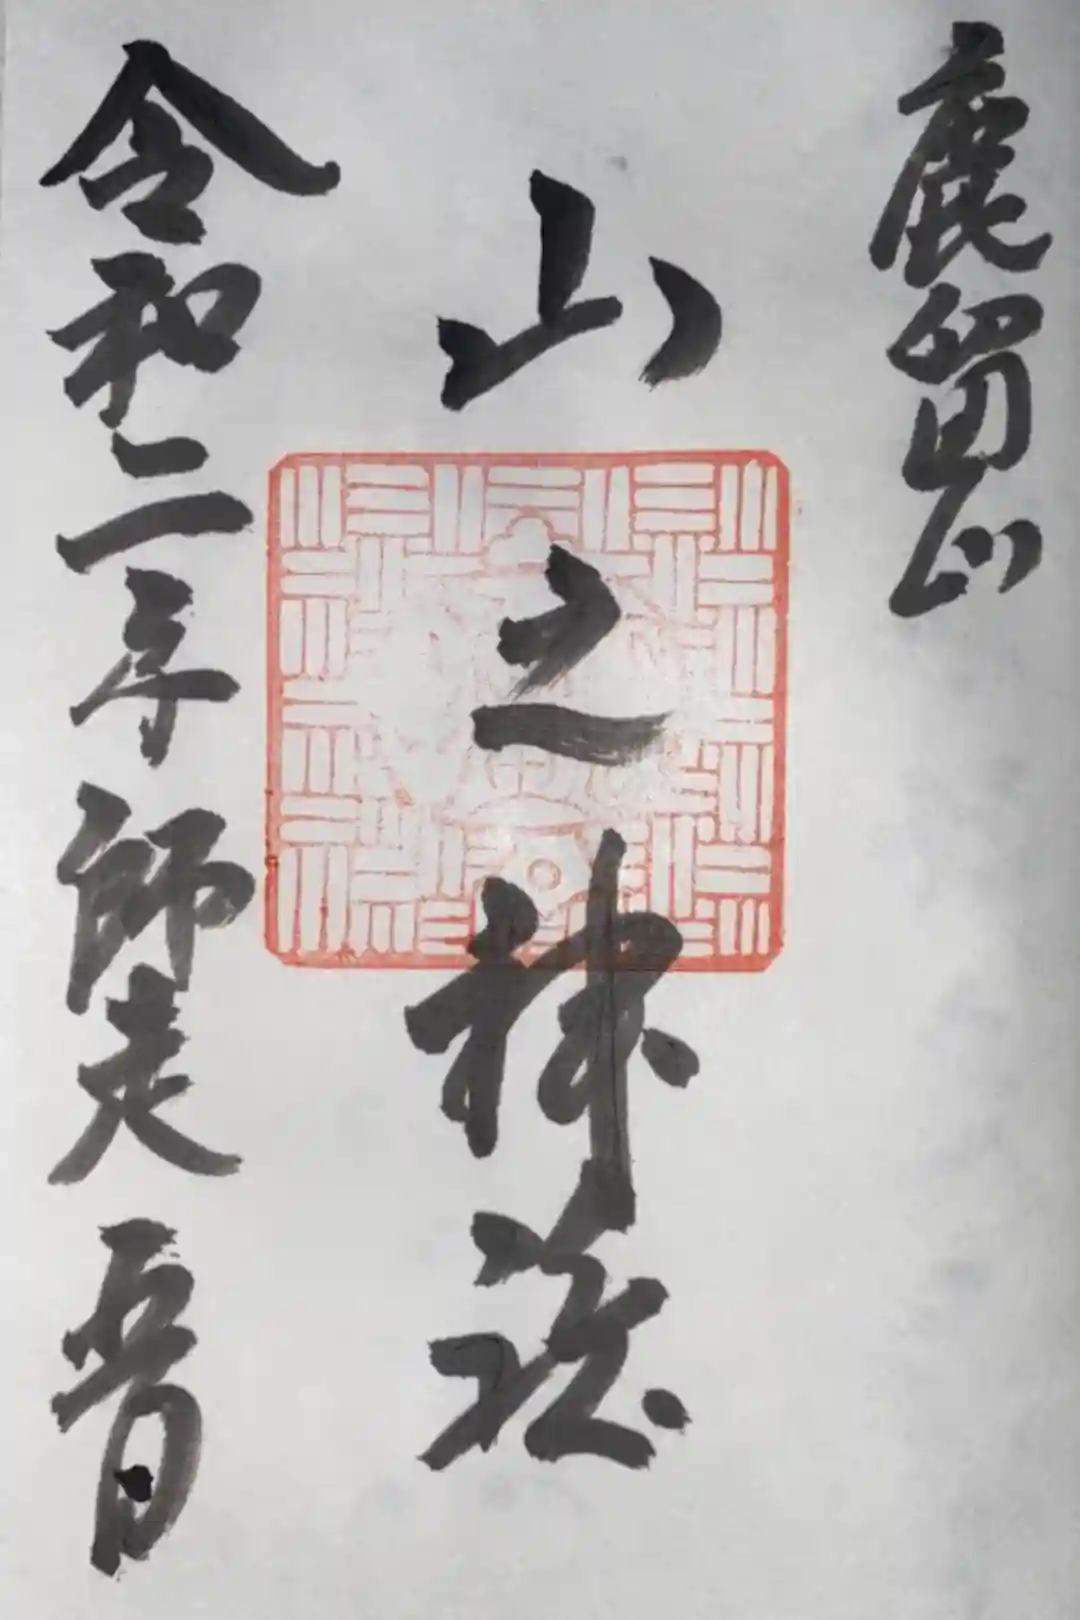 鹿留山
山之神社
令和二年師走